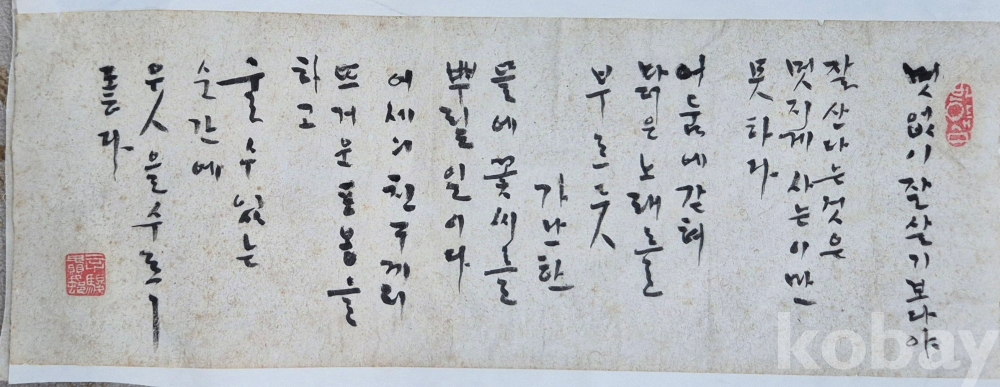 멋없이 잘 살기보다야
잘 산다는 것은
멋지게 사는 이만
못하다
어둠에 갇혀
밝은 노래를
부르듯
가난한
뜰에 꽃씨를
뿌릴 일이다
친구끼리
뜨거운 포옹을
하고
울 수 있는
순간에
웃을 수
kobay